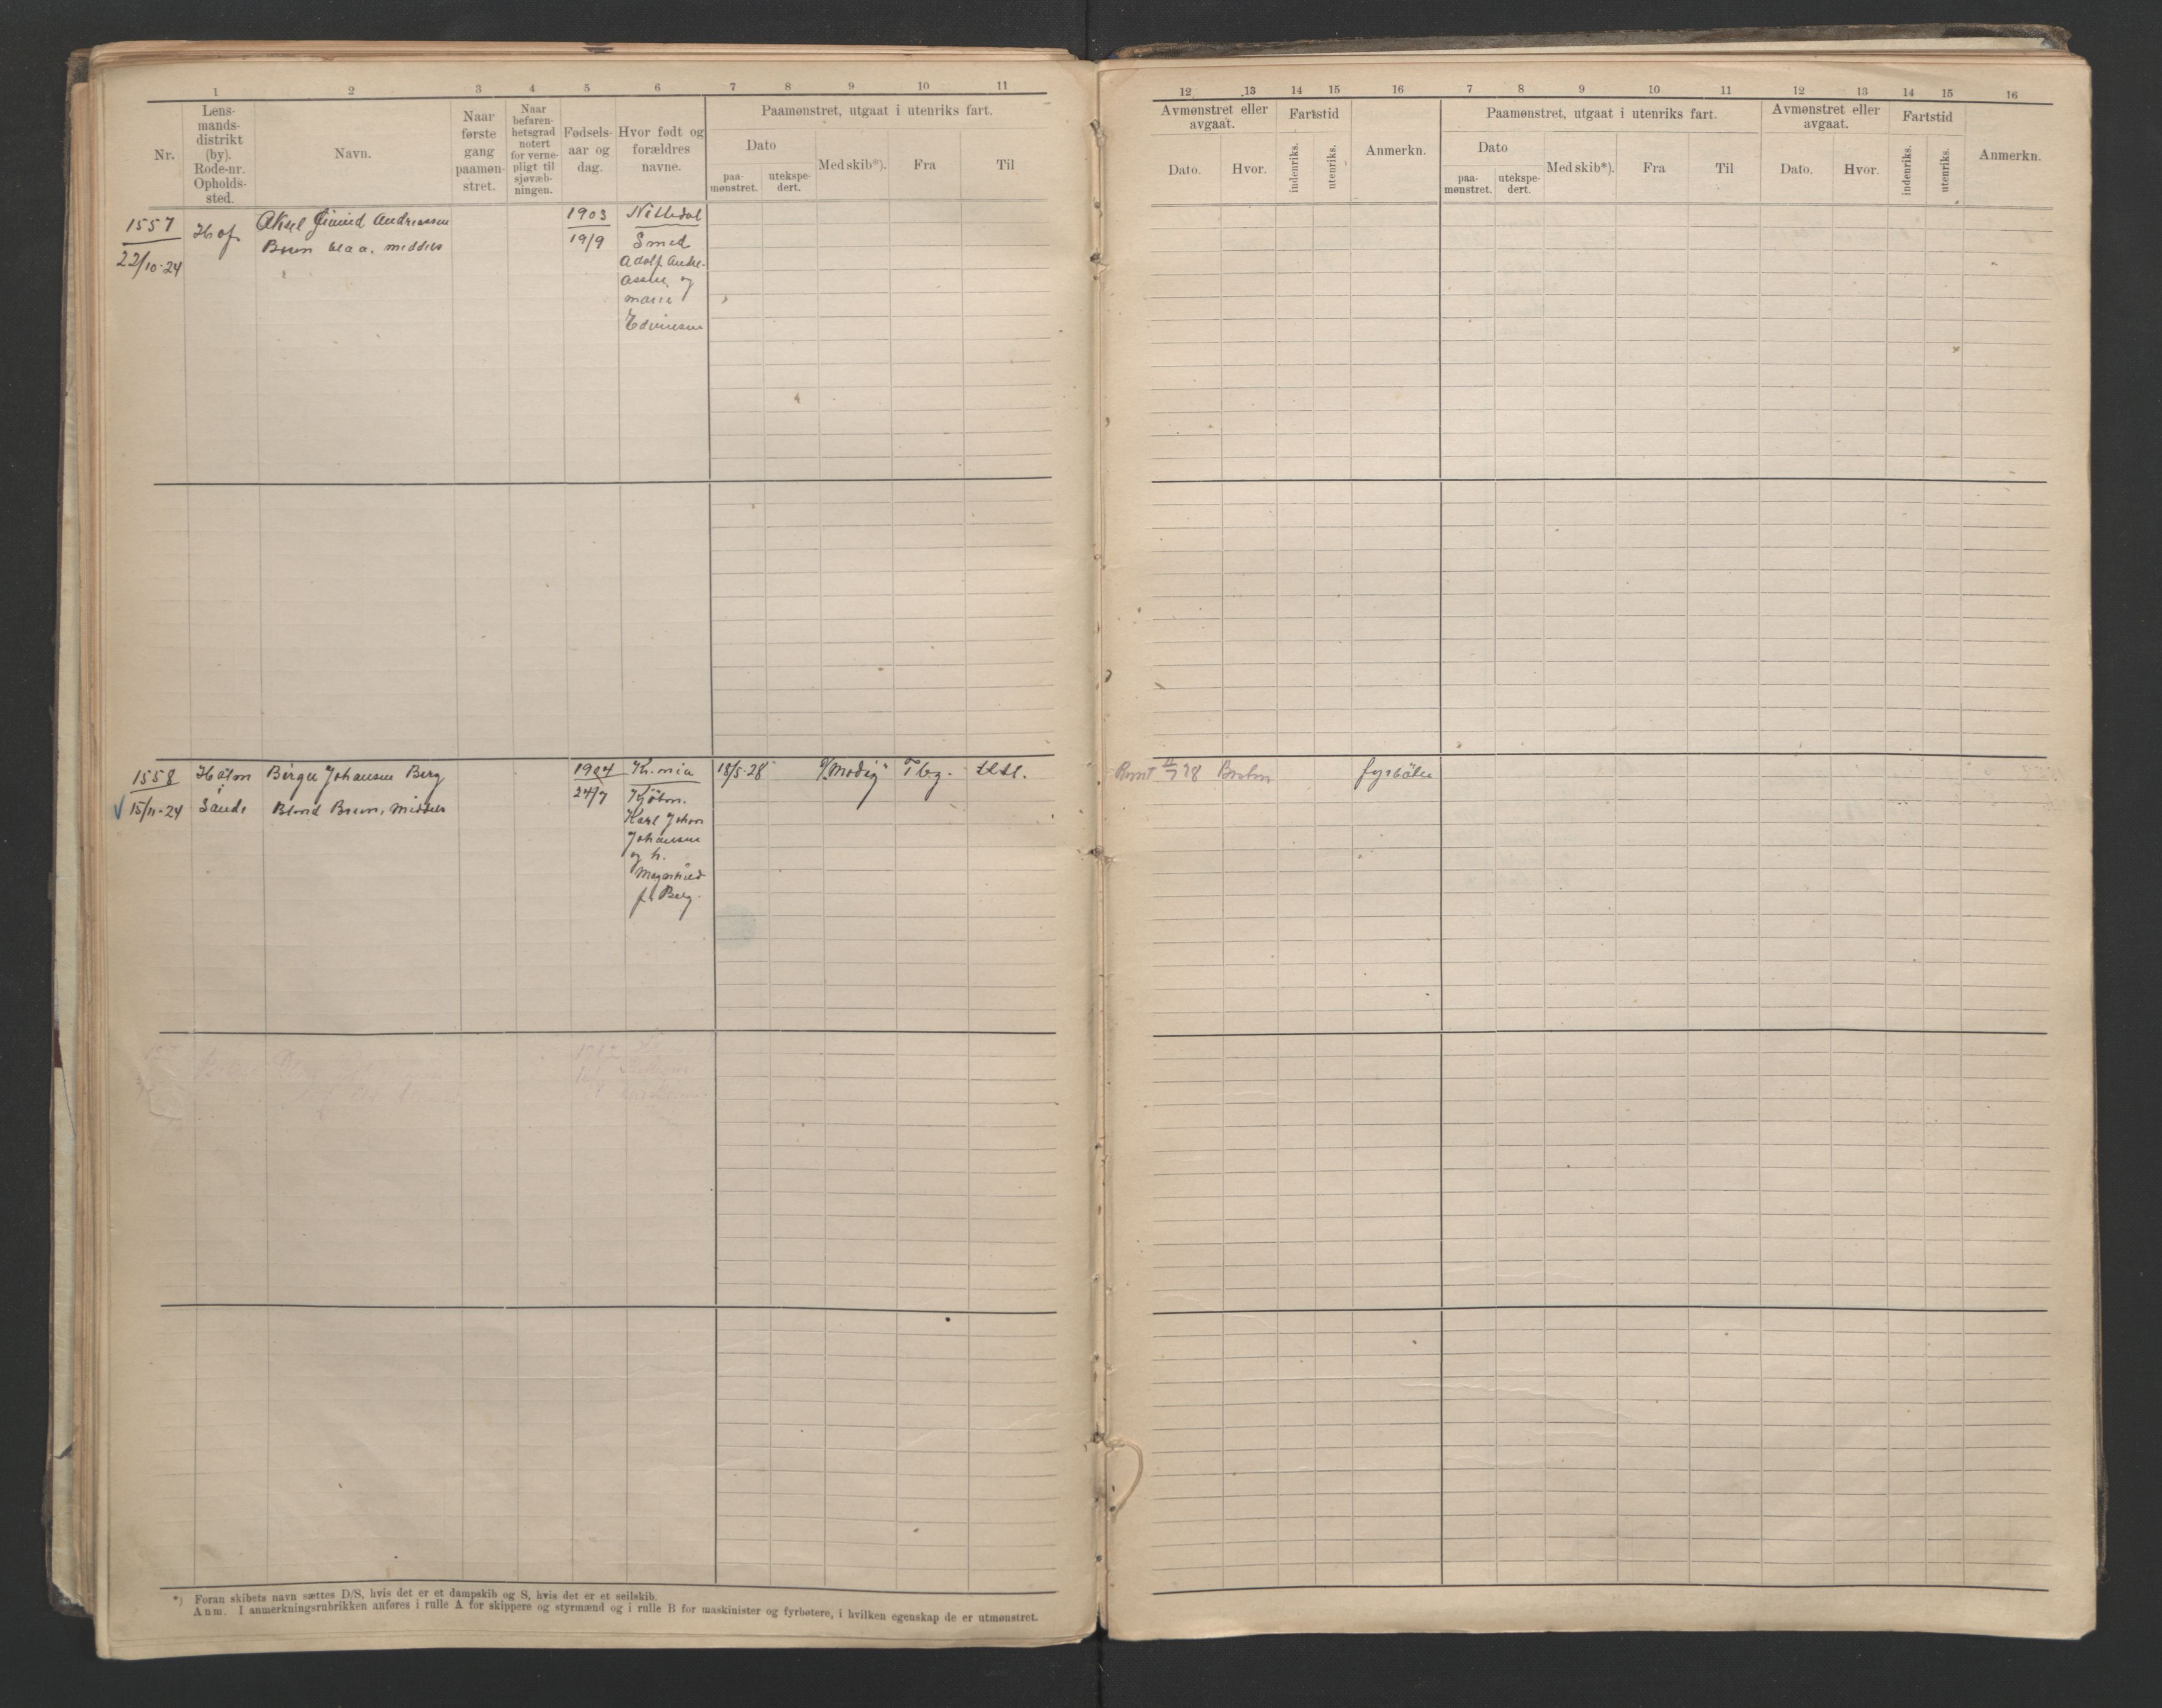 1 2 3 4 5 6 7 8 9 10 11
Nr.
Lens-
mands-
distrikt
(by).
Rode-nr.
Opholds-
sted.
Navn.
Naar
første
gang
paamøn-
stret.
Naar
befaren-
hetsgrad
notert
for verne-
pligt til
sjøvæb-
ningen.
Fødsels-
aar og
dag.
Hvor født og
forældres
navne.
Paamønstret, utgaat i utenriks fart.
Dato
paa-
mønstret.
utekspe-
dert.
Med skib*).
Fra
Til
1557
22/10-24
Hof
Aksel Andreassen
Brun blaa, middels
1903
19/9
Nittedal
Smed
Adolf Andre-
assen og
Marie
1558
15/11-24
Holm
i
Sande
Birger Johansen Berg
Blond Brun, Middels
1904
24/7
Kr.nia
Kjøbm.
Karl Johan
Johansen
og h.
Magnhild
f. Berg.
18/5-28
"Modig"
Tbg.
*) Foran skibets navn sættes D/S, hvis det er et dampskib og S, hvis det er et seilskib.
Anm. I anmerkningsrubrikken anføres i rulle A for skippere og styrmænd og i rulle B for maskinister og fyrbøtere, i hvilken egenskap de er utmønstret.
12 13 14 15 16 7 8 9 10 11 12 13 14 15 16
Avmønstret eller
avgaat.
Dato.
Hvor.
Fartstid
indenriks.
utenriks.
Anmerkn.
Paamønstret, utgaat i utenriks fart.
Dato
paa-
mønstret.
utekspe-
dert.
Med skib*).
Fra
Til
Avmønstret eller
avgaat.
Dato.
Hvor.
Fartstid
indenriks.
utenriks.
Anmerkn.
fyrbøter